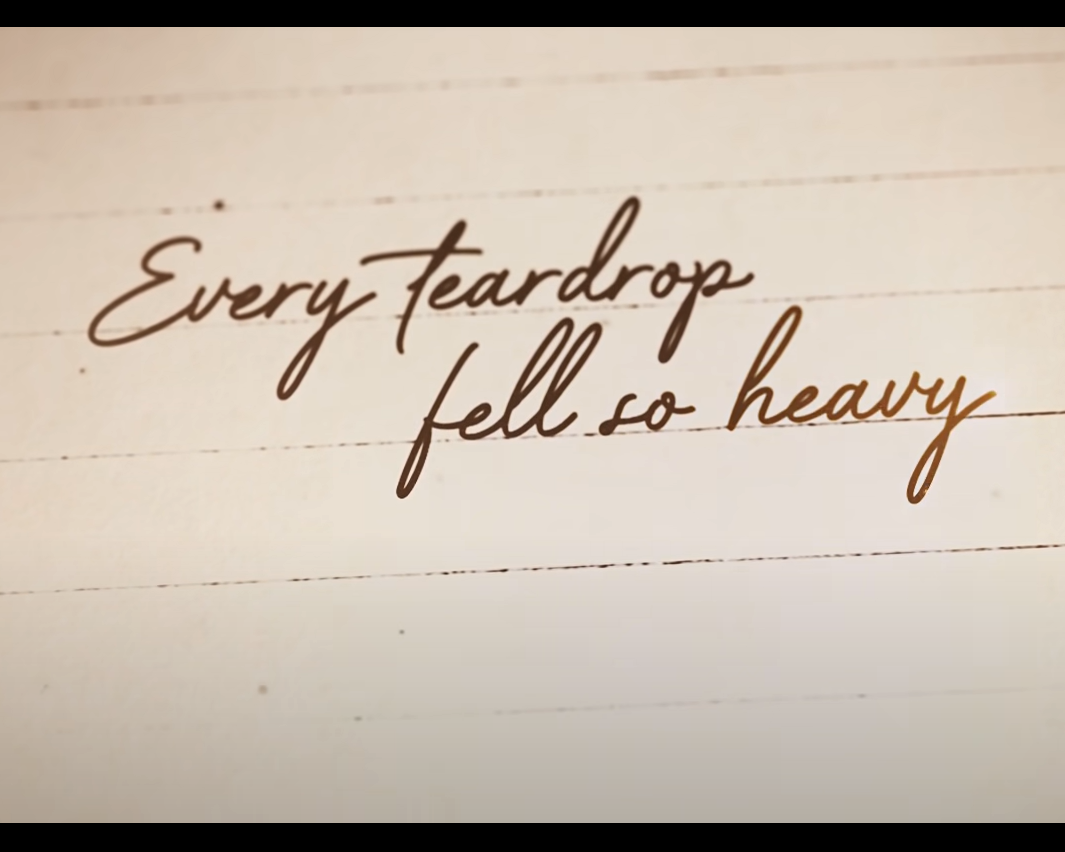 Every teardrop
fell so heavy